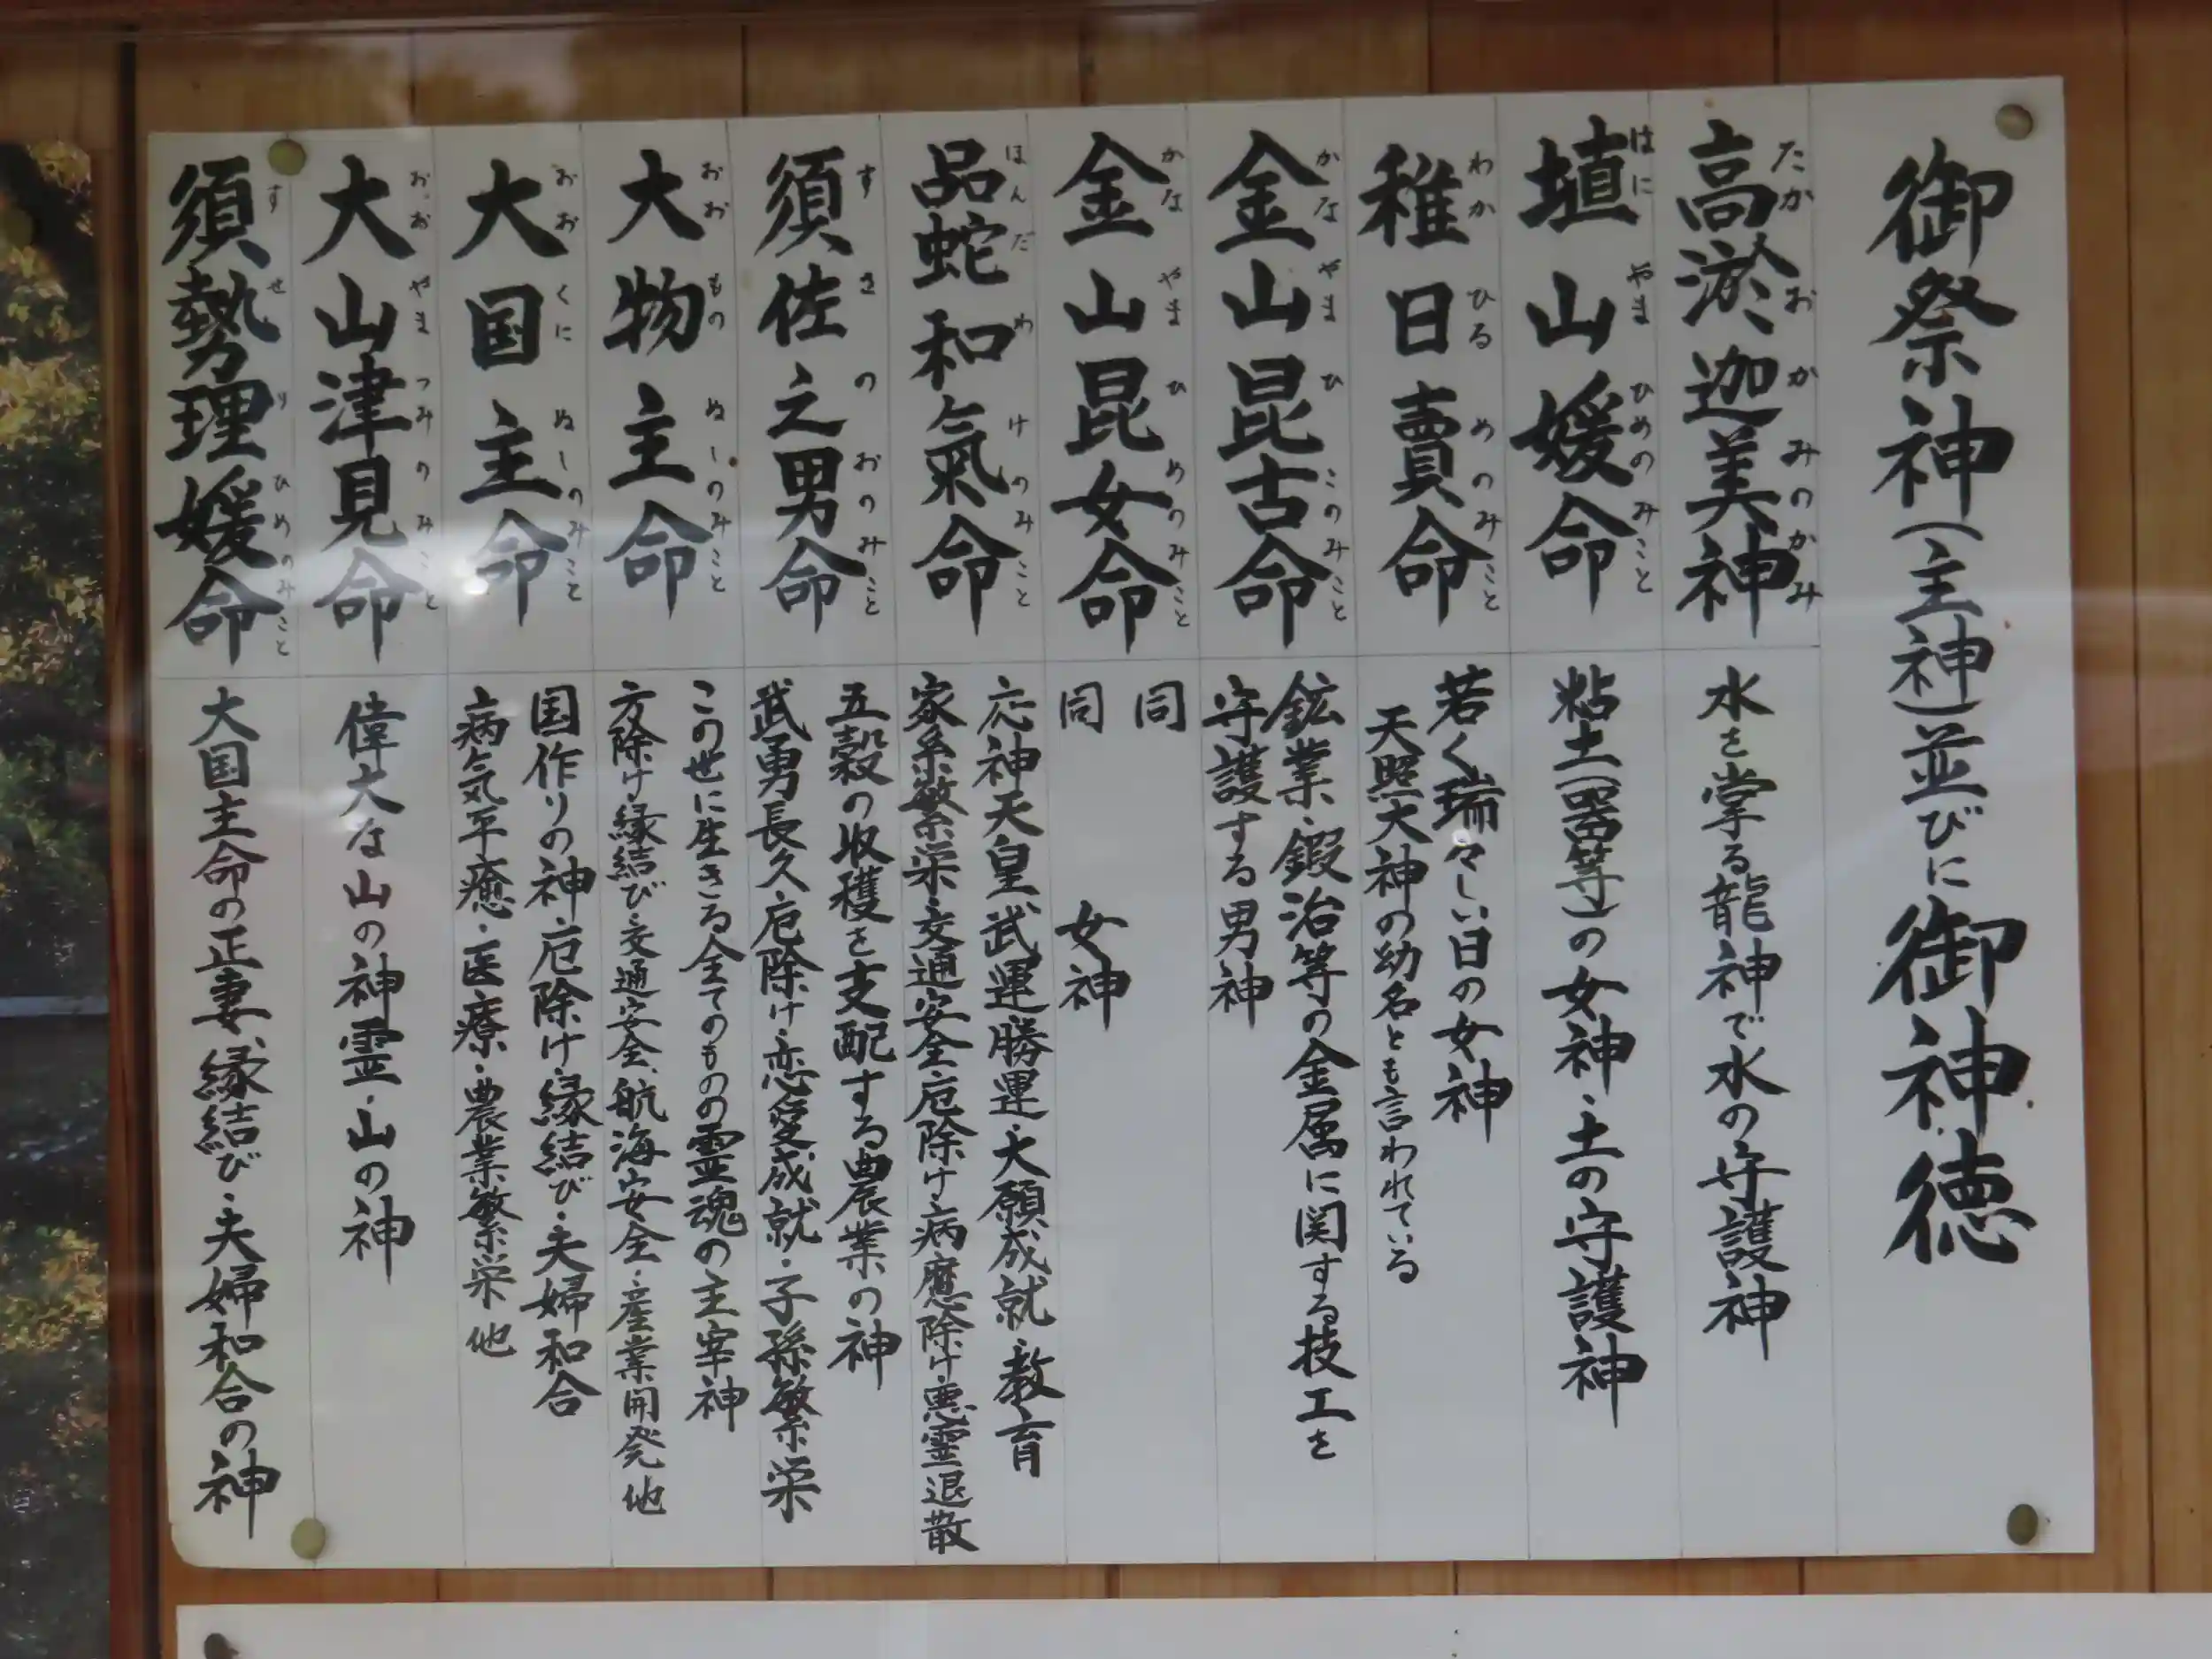 御祭神(主神)並びに御神徳
高淤迦美神
たかおかみのかみ
水を掌る龍神で水の守護神
埴山媛命
はにやまひめのみこと
粘土(器等)の女神・土の守護神
稚日賣命
わかひるめのみこと
若く瑞々しい日の女神
天照大神の幼名とも言われている
金山昆古命
かなやまひこのみこと
鉱業・鍛治等の金属に関する技工を
守護する男神
金山昆女命
かなやまひめのみこと
同
同 女神
品蛇和氣命
ほんだわけのみこと
応神天皇、武運勝運・大願成就・教育
家系繁栄・交通安全・厄除け・病魔除け悪霊退散
須佐之男命
すさのおのみこと
五穀の収穫を支配する農業の神
武勇長久・厄除け・恋愛成就・子孫繁栄
大物主命
おおものぬしのみこと
この世に生きる全てのものの霊魂の主宰神
方除け・縁結び・交通安全、航海安全・産業開発他
大国主命
おおくにぬしのみこと
国作りの神・厄除け・縁結び・夫婦和合
病気平癒・医療・農業繁栄他
大山津見命
おおやまつみのみこと
偉大な山の神霊・山の神
須勢理媛命
すせりひめのみこと
大国主命の正妻、縁結び・夫婦和合の神